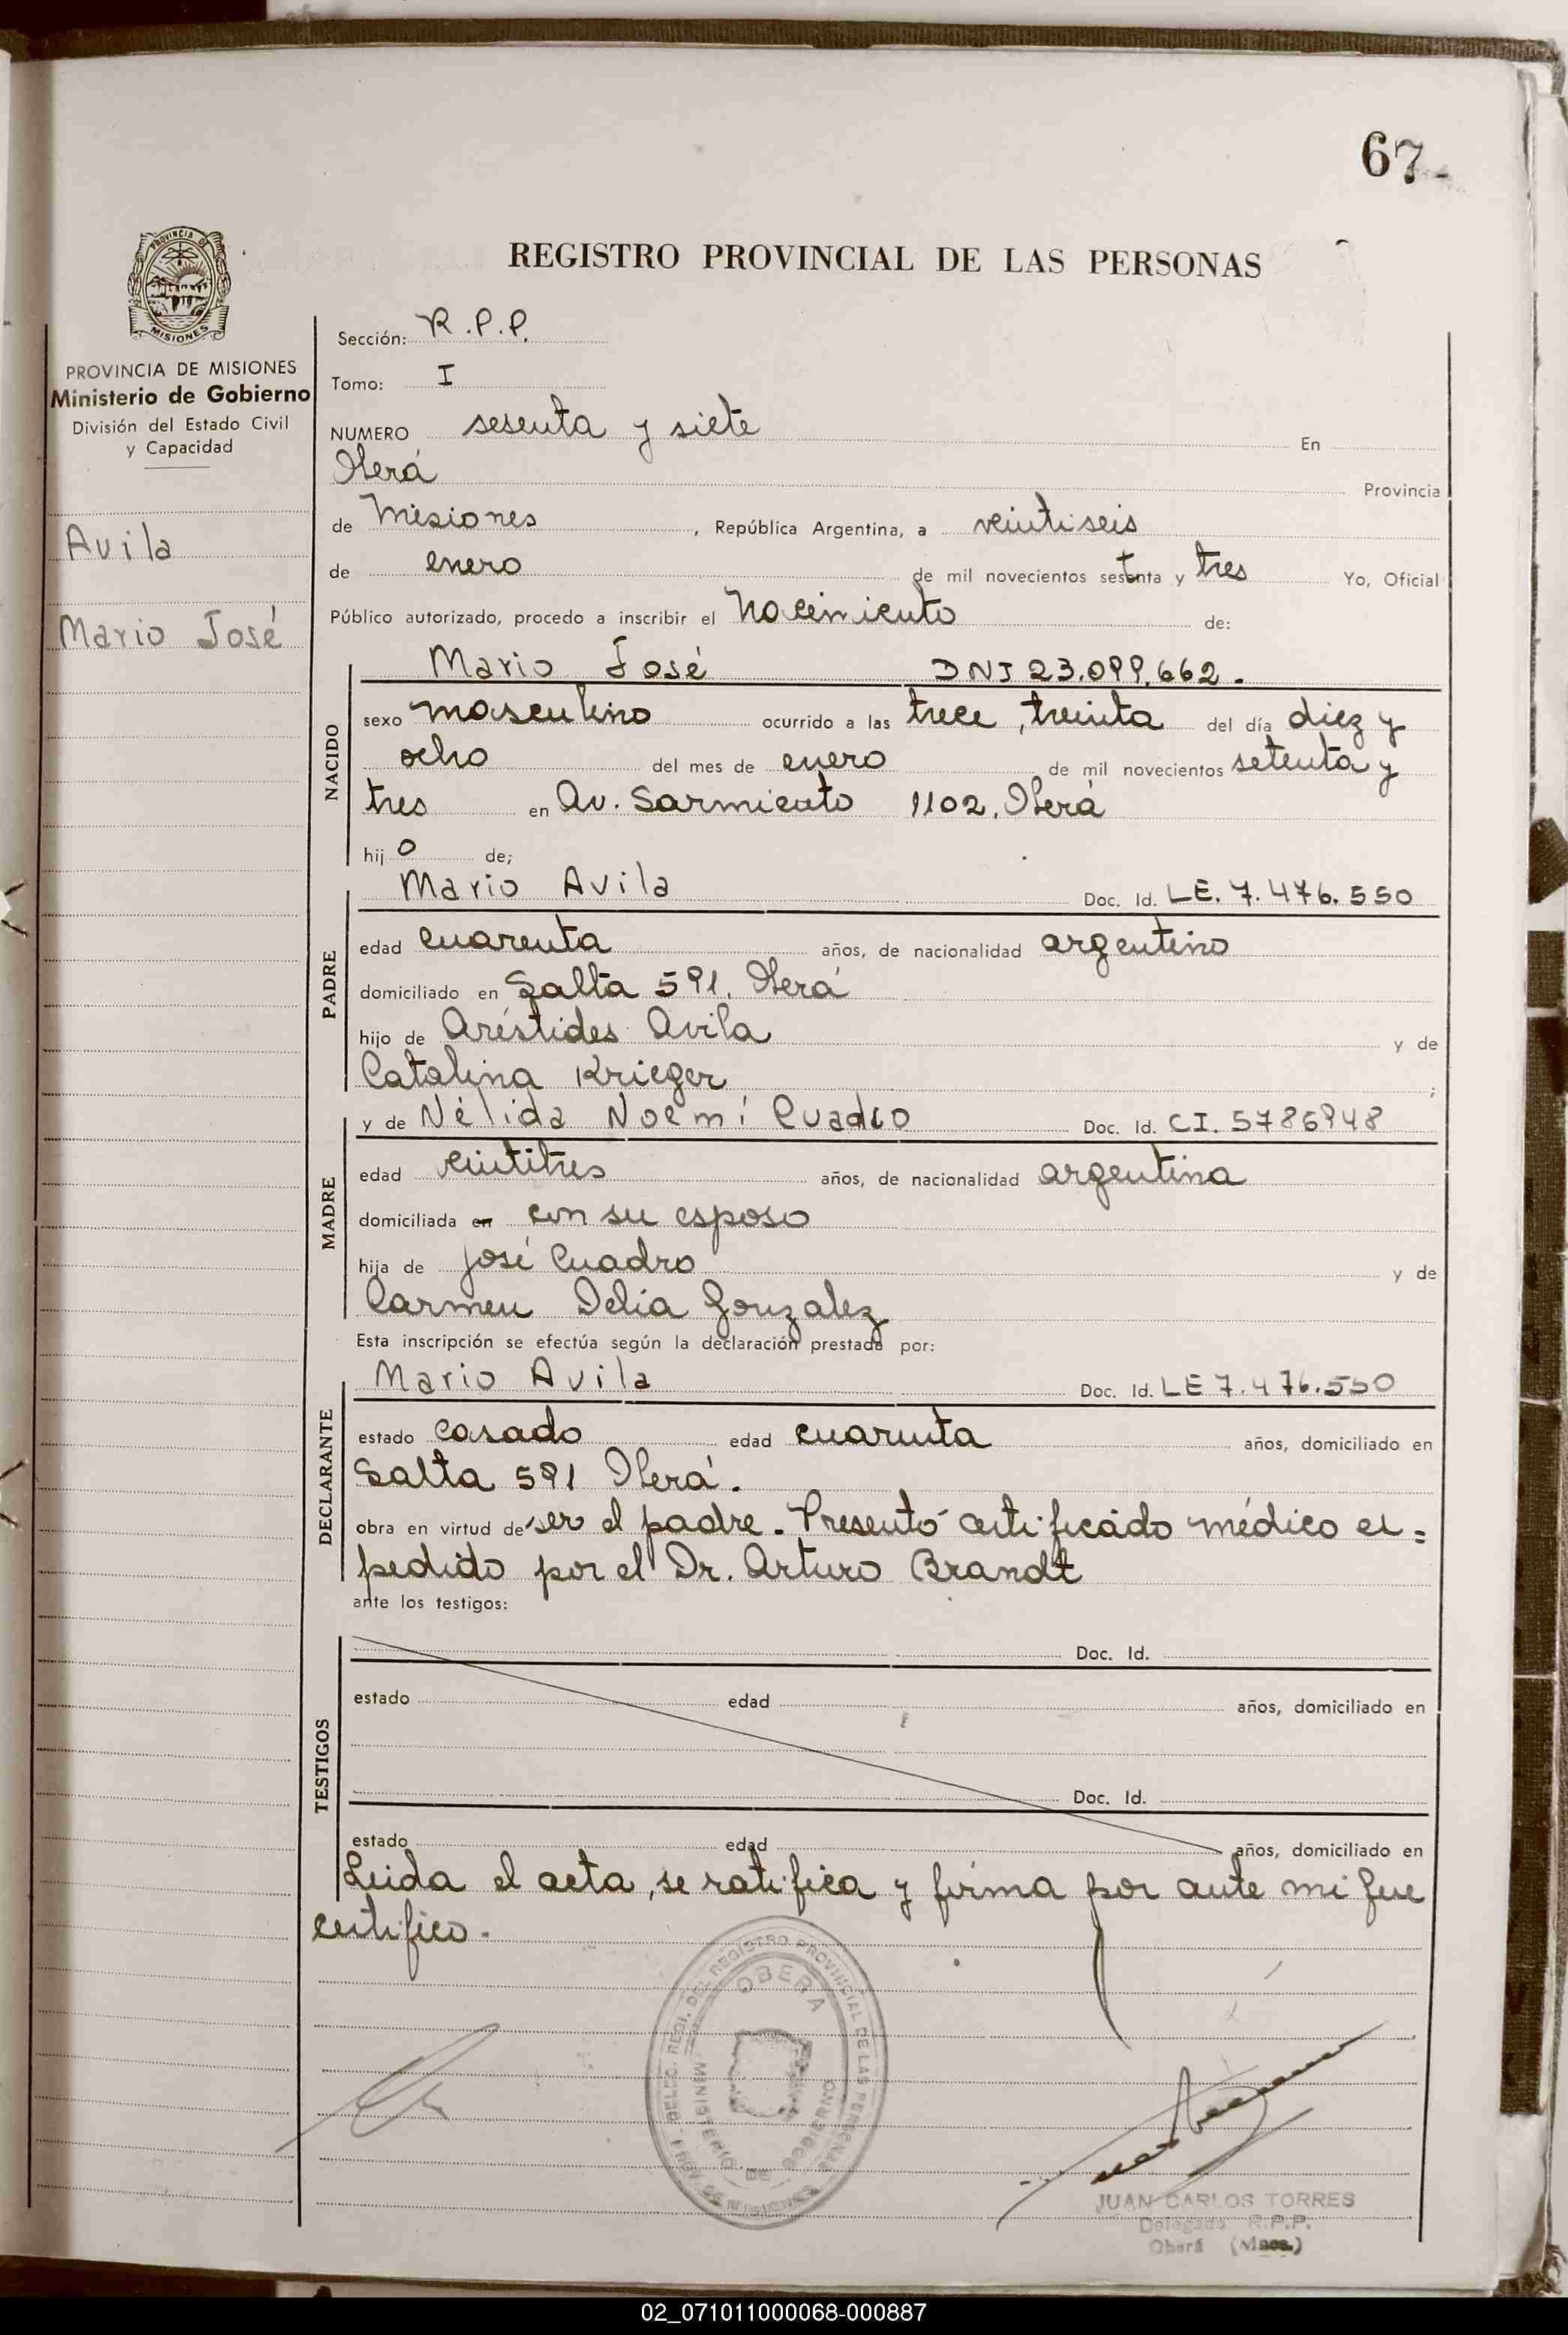 67
REGISTRO PROVINCIAL DE LAS PERSONAS
PROVINCIA DE
MISIONES
PROVINCIA DE MISIONES
Ministerio de Gobierno
División del Estado Civil
y Capacidad
Avila
Mario José
Sección: R.P.P.
Tomo: I
NUMERO sesenta y siete En
Oberá Provincia
de Misiones, República Argentina, a veintiseis
de enero de mil novecientos setenta y tres Yo, Oficial
Público autorizado, procedo a inscribir el Nacimiento de:
NACIDO
Mario José DNI 23.099.662.
sexo masculino ocurrido a las trece, treinta del día diez y
ocho del mes de enero de mil novecientos setenta y
tres en Av. Sarmiento 1102, Oberá
hijo de;
PADRE
Mario Avila Doc. Id. LE. 7.476.550
edad cuarenta años, de nacionalidad argentino
domiciliado en Salta 591, Oberá
hijo de Aréstides Avila y de
Catalina Krieger ;
MADRE
y de Nélida Noemí Cuadro Doc. Id. CI. 5786948
edad veintitres años, de nacionalidad argentina
domiciliada en con su esposo
hija de José Cuadro y de
Carmen Delia Gonzalez
Esta inscripción se efectúa según la declaración prestada por:
DECLARANTE
Mario Avila Doc. Id. LE 7.476.550
estado casado edad cuarenta años, domiciliado en
Salta 591 Oberá.
obra en virtud de ser el padre. Presentó certificado médico ex=
pedido por el Dr. Arturo Brandt
ante los testigos:
TESTIGOS
Doc. Id.
estado edad años, domiciliado en
Doc. Id.
estado edad años, domiciliado en
Leida el acta, se ratifica y firma por ante mi que
certifico.
DEL REGISTRO PROVINCIAL DE LAS PERSONAS
OBERA
MINISTERIO DE GOBIERNO
DE MISIONES
JUAN CARLOS TORRES
Delegado R.P.P.
Oberá (Mnes.)
02_071011000068-000887